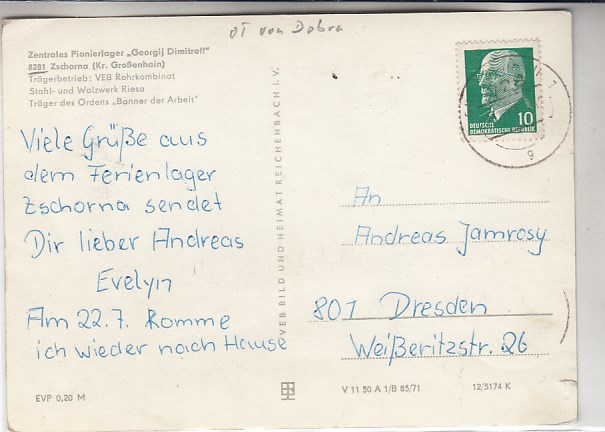 OT von Dobra
Zentrales Pionierlager „Georgij Dimitroff"
8281 Zschorna (Kr. Großenhain)
Trägerbetrieb: VEB Rohrkombinat
Stahl- und Walzwerk Riesa
Träger des Ordens „Banner der Arbeit"
Viele Grüße aus
dem Ferienlager
Zschorna sendet
Dir lieber Andreas
Evelyn
Am 22.7. komme
ich wieder nach Hause
EVP 0,20 M
VEB BILD UND HEIMAT REICHENBACH I. V.
10
DEUTSCHE
DEMOKRATISCHE REPUBLIK
An
Andreas Jamrosy
801 Dresden
Weißeritzstr. 26
V 11 50 A 1/B 85/71
12/5174 K